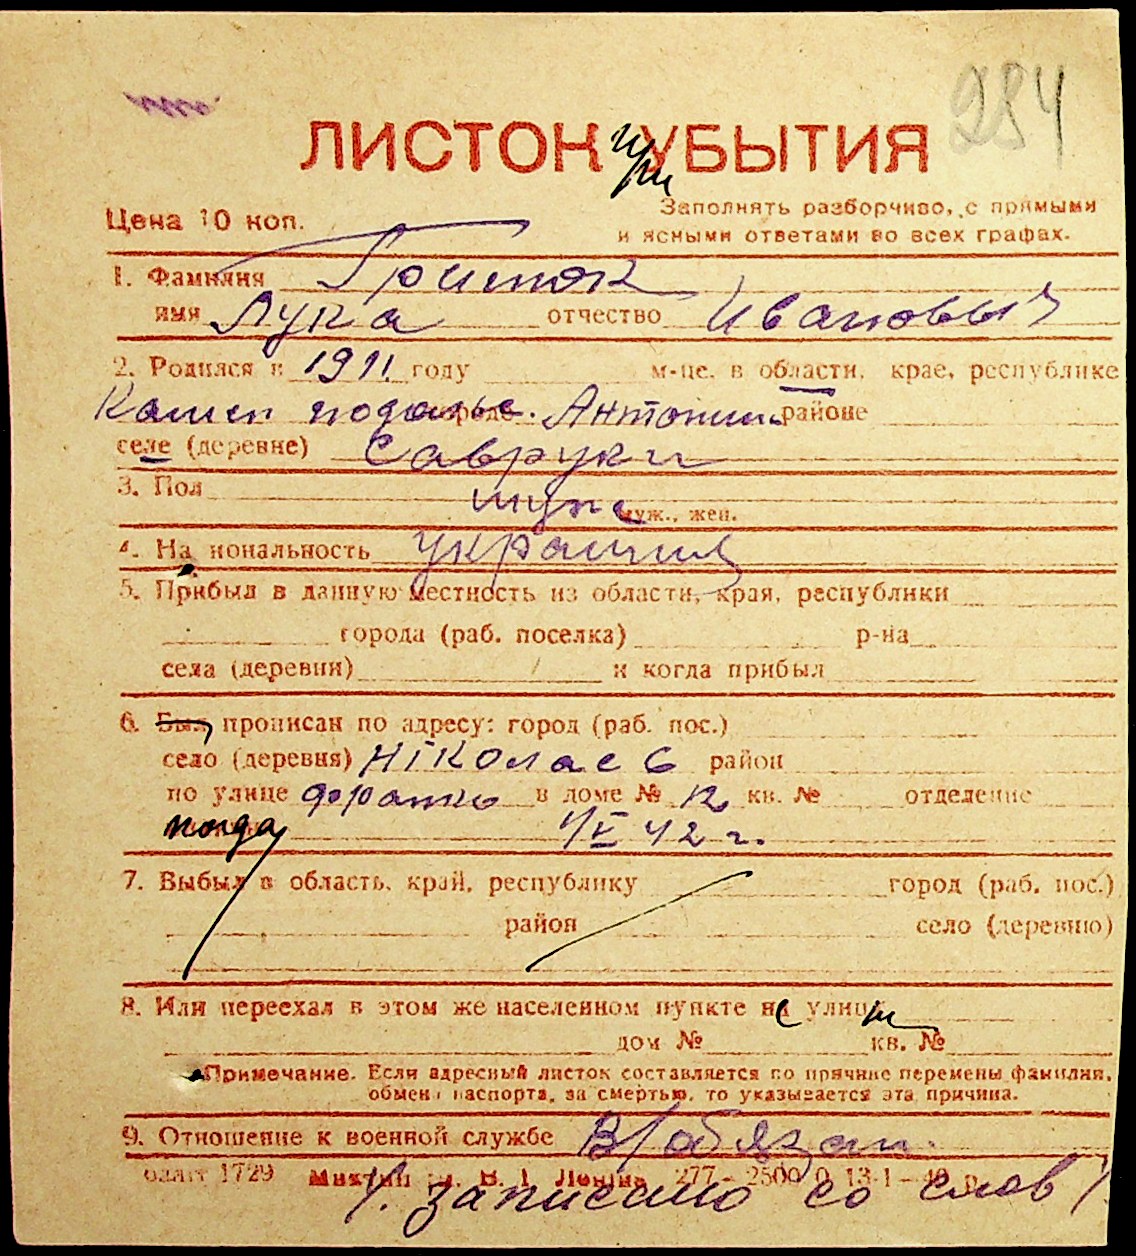 284
ЛИСТОК при УБЫТИЯ
Цена 10 коп.
Заполнять разборчиво, с прямыми
и ясными ответами во всех графах.
1. Фамилия
имя Лука отчество Иванович
2. Родился в 1911 году м-це, в области, крае, республике
Камен подольс. городе Антонин. районе
селе (деревне) Савруки
3. Пол муж
муж., жен.
4. Национальность украинец
5. Прибыл в данную местность из области, края, республики
города (раб. поселка) р-на
села (деревни) и когда прибыл
6. Был прописан по адресу: город (раб. пос.)
село (деревня) Ніколаев район
по улице Франко в доме № 12 кв. № отделение
когда 1/V 42 г.
7. Выбыл в область, край, республику город (раб. пос.)
район село (деревню)
8. Или переехал в этом же населенном пункте с улицы
дом № кв. №
Примечание. Если адресный листок составляется по причине перемены фамилии,
обмена паспорта, за смертью, то указывается эта причина.
9. Отношение к военной службе В/обязан.
1729 277—2500 13-1—
/. записано со слов /.